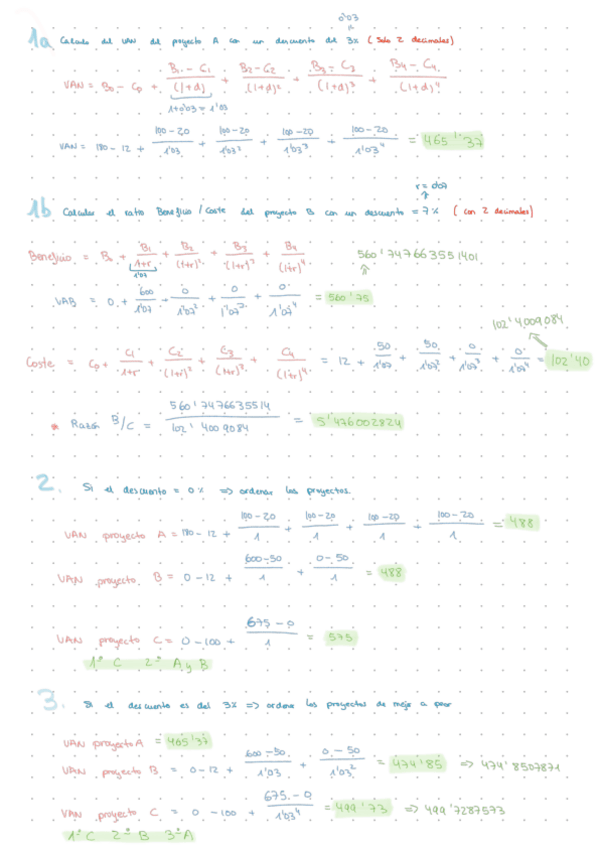 0'03
1a Calculo del VAN del proyecto A con un descuento del 3% (solo 2 decimales)
VAN = B₀ - C₀ + (B₁ - C₁)/(1+d) + (B₂ - C₂)/(1+d)² + (B₃ - C₃)/(1+d)³ + (B₄ - C₄)/(1+d)⁴
1+0'03 = 1'03
VAN = 180 - 12 + (100-20)/1'03 + (100-20)/1'03² + (100-20)/1'03³ + (100-20)/1'03⁴ = 465'37
r = 0'07
1b Calcular el ratio Beneficio / Coste del proyecto B con un descuento = 7% (con 2 decimales)
Beneficio = B₀ + B₁/(1+r) + B₂/(1+r)² + B₃/(1+r)³ + B₄/(1+r)⁴ 560'747663551401
1'07
VAB = 0 + 600/1'07 + 0/1'07² + 0/1'07³ + 0/1'07⁴ = 560'75
102'4009084
Coste = C₀ + C₁/(1+r) + C₂/(1+r)² + C₃/(1+r)³ + C₄/(1+r)⁴ = 12 + 50/1'07 + 50/1'07² + 0/1'07³ + 0/1'07⁴ = 102'40
* Razón B/C = 560'7476635514/102'4009084 = 5'476002824
2. Si el descuento = 0% => ordenar los proyectos.
VAN proyecto A = 180 - 12 + (100-20)/1 + (100-20)/1 + (100-20)/1 + (100-20)/1 = 488
VAN proyecto B = 0 - 12 + (600-50)/1 + (0-50)/1 = 488
VAN proyecto C = 0 - 100 + (675 - 0)/1 = 575
1º C 2º A y B
3. Si el descuento es del 3% => ordene los proyectos de mejor a peor
VAN proyecto A = 465'37
VAN proyecto B = 0 - 12 + (600-50)/1'03 + (0-50)/1'03² = 474'85 => 474'8507871
VAN proyecto C = 0 - 100 + (675 - 0)/1'03⁴ = 499'73 => 499'7287573
1º C 2º B 3º A